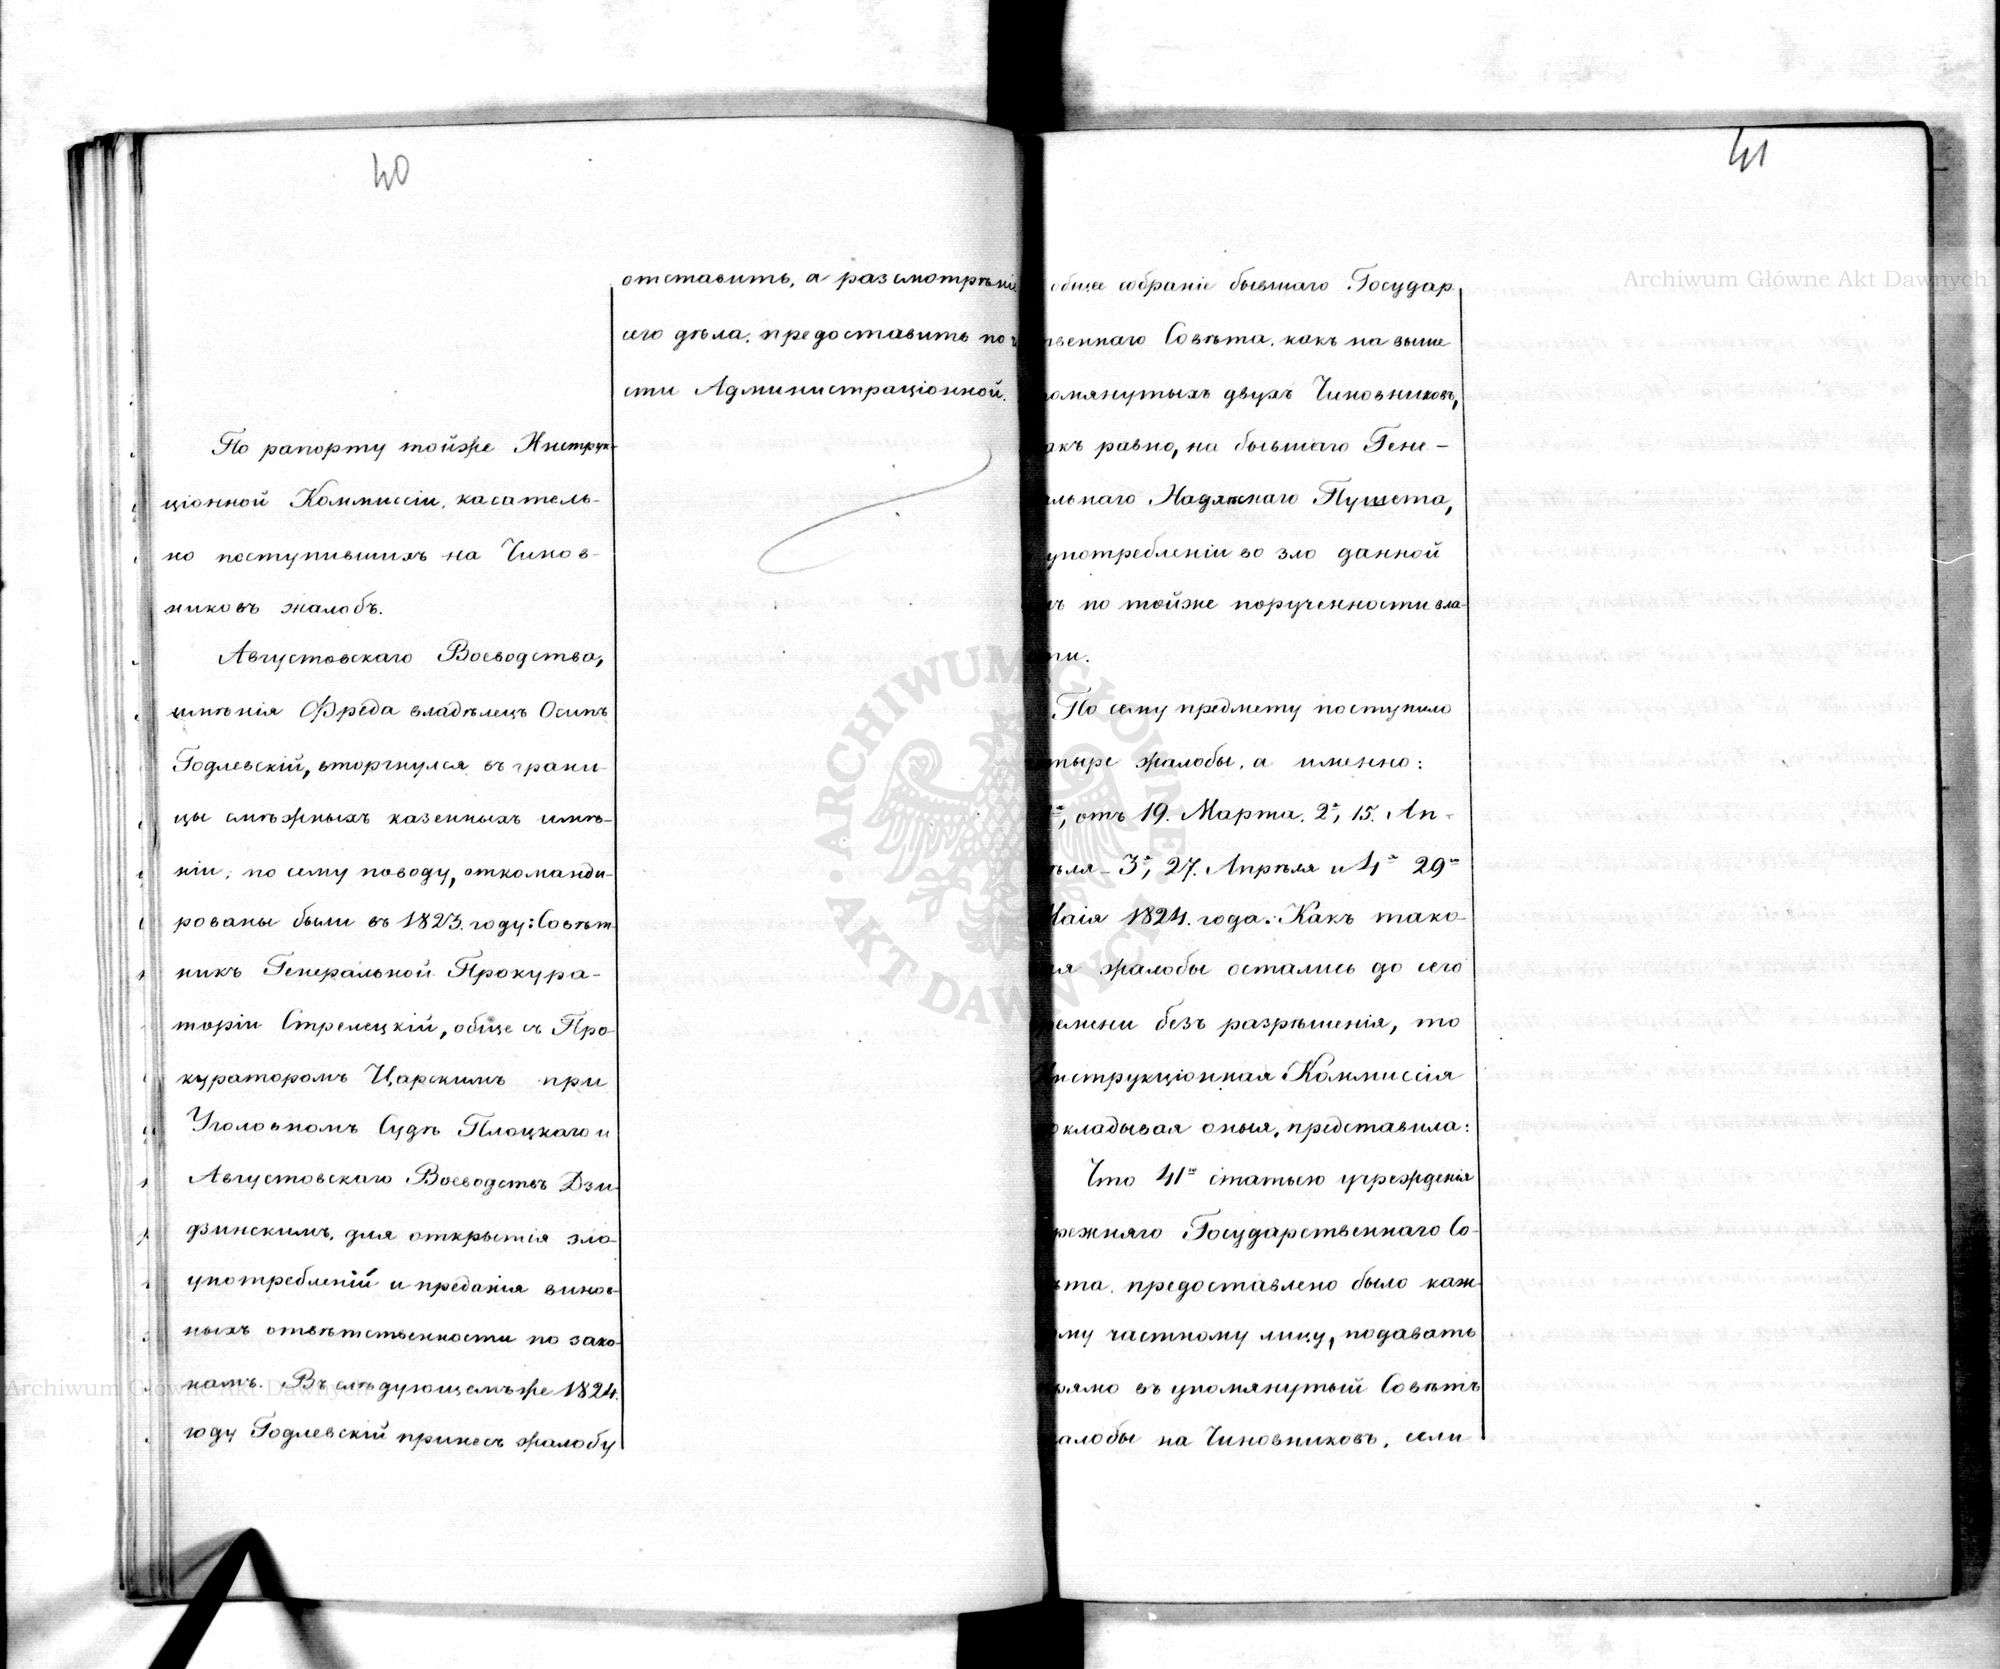 40
отставить, а разсмотрѣніе
сего дѣла, предоставить по ча
сти Администраціонной.
По рапорту тойже Инструк-
ціонной Коммиссіи, касатель-
но поступившихъ на Чинов-
никовъ жалобъ.
Августовскаго Воеводства,
имѣнія Фреда владѣлецъ Осипъ
Годлевскій, вторгнулся въ грани-
цы смѣжныхъ казенныхъ имѣ-
ніи; по сему поводу, откоманди-
рованы были въ 1823. году: Совѣт-
никъ Генеральной Прокура-
торіи Стрелецкій, обще съ Про-
кураторомъ Царскимъ при
Уголовномъ Судѣ Плоцкаго и
Августовскаго Воеводствъ Дзи-
дзинскимъ, для открытія зло-
употребленій и преданія винов-
ныхъ отвѣтственности по зако-
намъ. Въ слѣдующемъ же 1824.
году Годлевскій принесъ жалобу
41
общее собраніе бывшаго Государ
твеннаго Совѣта, какъ на выше
омянутыхъ двухъ Чиновниковъ,
акъ равно, на бывшаго Гене-
альнаго Надлѣснаго Пушета,
употребленіи во зло данной
ъ по тойже порученности вла-
ти.
По сему предмету поступило
тыре жалобы, а именно:
отъ 19. Марта, 2я, 15. Ап-
ѣля - 3я, 27. Апрѣля и 4я 29го
Маія 1824. года. Какъ тако-
я жалобы остались до сего
ремени безъ разрѣшенія, то
Инструкціонная Коммиссія
окладывая оныя, представила:
Что 41ю статьею учрежденія
режняго Государственнаго Со-
ѣта, предоставлено было каж-
ому частному лицу, подавать
рямо въ упомянутый Совѣтъ
алобы на Чиновниковъ, если
Archiwum Główne Akt Dawnych
Archiwum Główne Akt Dawnych
ARCHIWUM GŁÓWNE AKT DAWNYCH